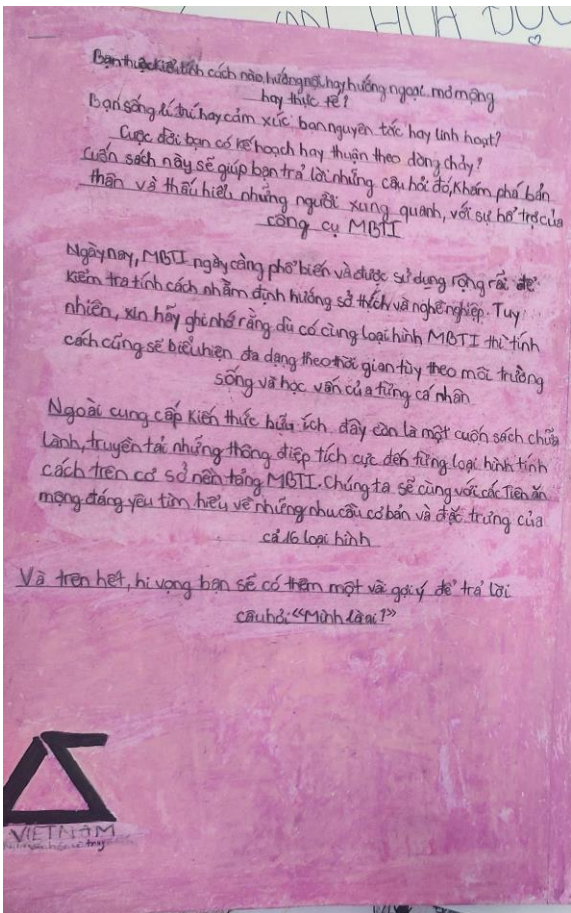 HOA ĐỌC
Bạn thuộc kiểu tính cách nào, hướng nội, hay hướng ngoại, mơ mộng
hay thực tế?
Bạn sống lí trí hay cảm xúc bạn nguyên tắc hay linh hoạt?
Cuộc đời bạn có kế hoạch hay thuận theo dòng chảy?
Cuốn sách này sẽ giúp bạn trả lời những câu hỏi đó, khám phá bản
thân và thấu hiểu những người xung quanh, với sự hỗ trợ của
công cụ MBTI
Ngày nay, MBTI ngày càng phổ biến và được sử dụng rộng rãi để
kiểm tra tính cách nhằm định hướng sở thích và nghề nghiệp. Tuy
nhiên, xin hãy ghi nhớ rằng dù có cùng loại hình MBTI thì tính
cách cũng sẽ biểu hiện đa dạng theo thời gian tùy theo môi trường
sống và học vấn của từng cá nhân
Ngoài cung cấp kiến thức hữu ích đây còn là một cuốn sách chữa
lành, truyền tải những thông điệp tích cực đến từng loại hình tính
cách trên cơ sở nền tảng MBTI. Chúng ta sẽ cùng với các Tiên ăn
mộng đáng yêu tìm hiểu về những nhu cầu cơ bản và đặc trưng của
cả 16 loại hình
Và trên hết, hi vọng bạn sẽ có thêm một vài gợi ý để trả lời
câu hỏi "Mình là ai?"
VIETNAM